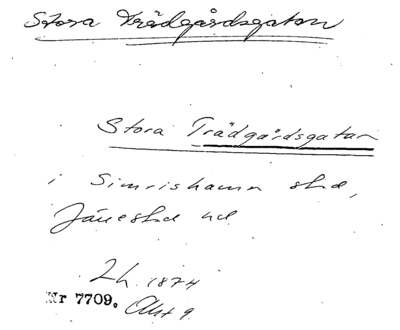 Stora Trädgårdsgatan
Stora Trädgårdsgatan
i Simrishamn stad,
Järrestad hd
Lh. 1874
Nr 7709. Akt 9.